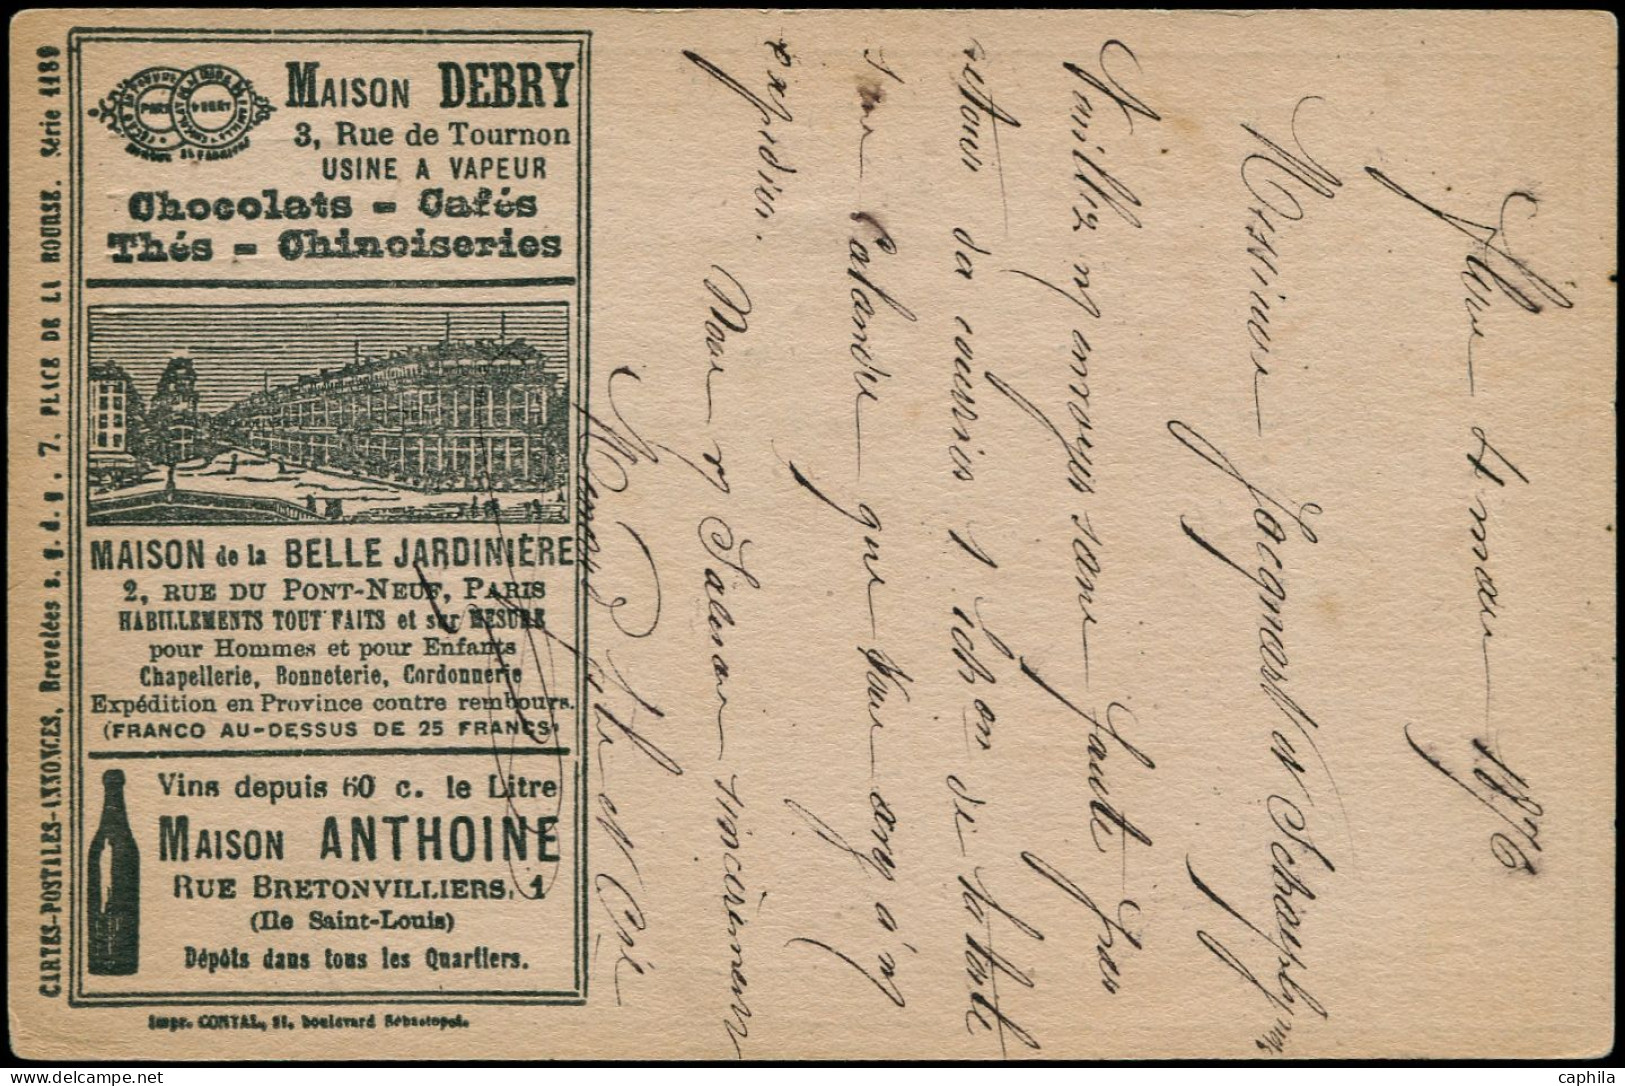 MAISON DEBRY
3, Rue de Tournon
USINE A VAPEUR
Chocolats - Cafés
Thés - Chinoiseries
MAISON de la BELLE JARDINIÈRE
2, RUE DU PONT-NEUF, PARIS
HABILLEMENTS TOUT FAITS et sur MESURE
pour Hommes et pour Enfants
Chapellerie, Bonneterie, Cordonnerie
Expédition en Province contre rembours.
(FRANCO AU-DESSUS DE 25 FRANCS)
Vins depuis 60 c. le Litre
MAISON ANTHOINE
RUE BRETONVILLIERS, 1
(Ile Saint-Louis)
Dépôts dans tous les Quartiers.
Impr. CONTAL, boulevard Sébastopol.
CARTES-POSTALES-ANNONCES, Brevetées s. g. d. g. 7, PLACE DE LA BOURSE. Série 1189
4 mars 1876
Messieurs Jacquest et
Veuillez m'envoyer sans faute par
retour du courrier 1 de la
que vous avez d'm
expédier.
sincèrement
et Cie